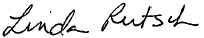 Linda Rutsch